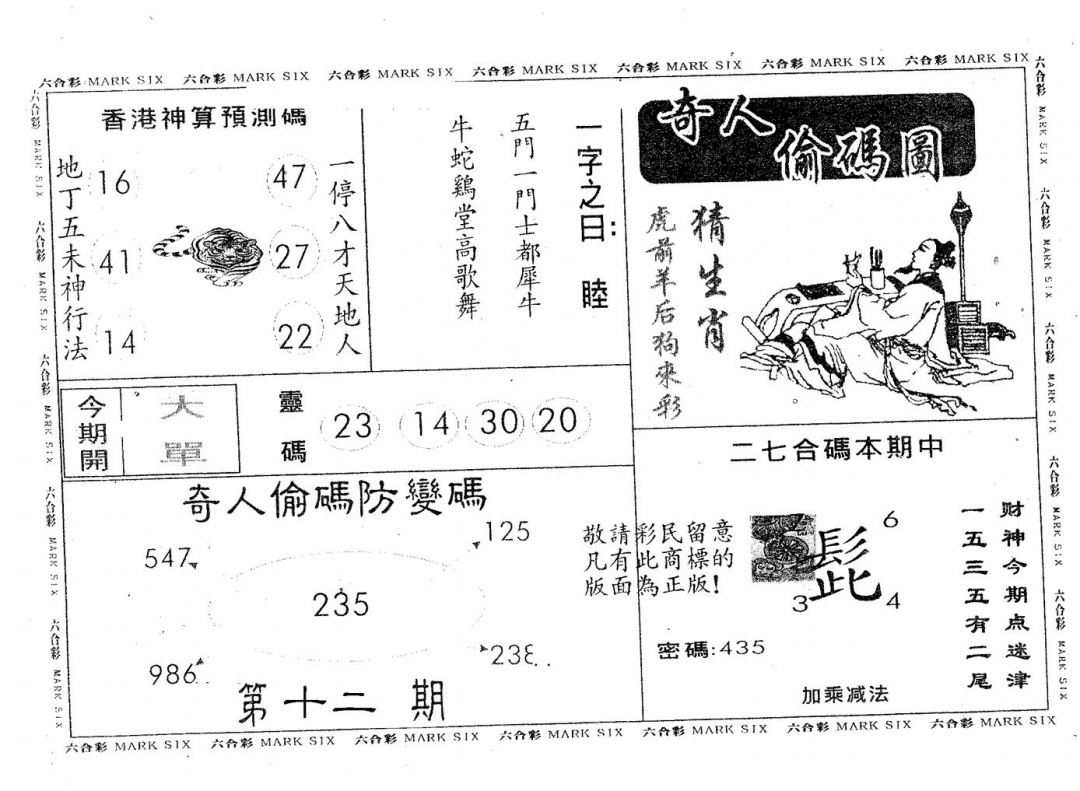 六合彩 MARK SIX 六合彩 MARK SIX 六合彩 MARK SIX 六合彩 MARK SIX 六合彩 MARK SIX 六合彩 MARK SIX 六合彩 MARK SIX
香港神算預測碼
地丁五未神行法
16
47
41
27
14
22
一停八才天地人
一字之曰:睦
五門一門士都犀牛
牛蛇鷄堂高歌舞
奇人偷碼圖
猜生肖
虎前羊后狗來彩
今期開
大單
靈碼
23 14 30 20
二七合碼本期中
奇人偷碼防變碼
547
125
235
986
238
第十二期
敬請彩民留意
凡有此商標的
版面為正版!
髭
6
3
4
密碼:435
加乘减法
财神今期点迷津
一五三五有二尾
六合彩 MARK SIX 六合彩 MARK SIX 六合彩 MARK SIX 六合彩 MARK SIX 六合彩 MARK SIX 六合彩 MARK SIX 六合彩 MARK SIX
六合彩 MARK SIX 六合彩 MARK SIX 六合彩 MARK SIX 六合彩 MARK SIX 六合彩 MARK SIX
六合彩 MARK SIX 六合彩 MARK SIX 六合彩 MARK SIX 六合彩 MARK SIX 六合彩 MARK SIX